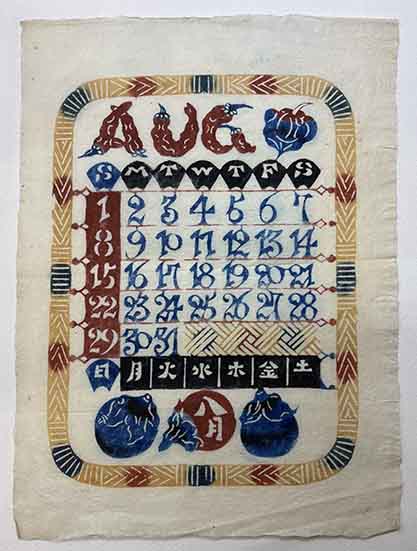 AUG
S M T W T F S
1 2 3 4 5 6 7
8 9 10 11 12 13 14
15 16 17 18 19 20 21
22 23 24 25 26 27 28
29 30 31
日 月 火 水 木 金 土
八月